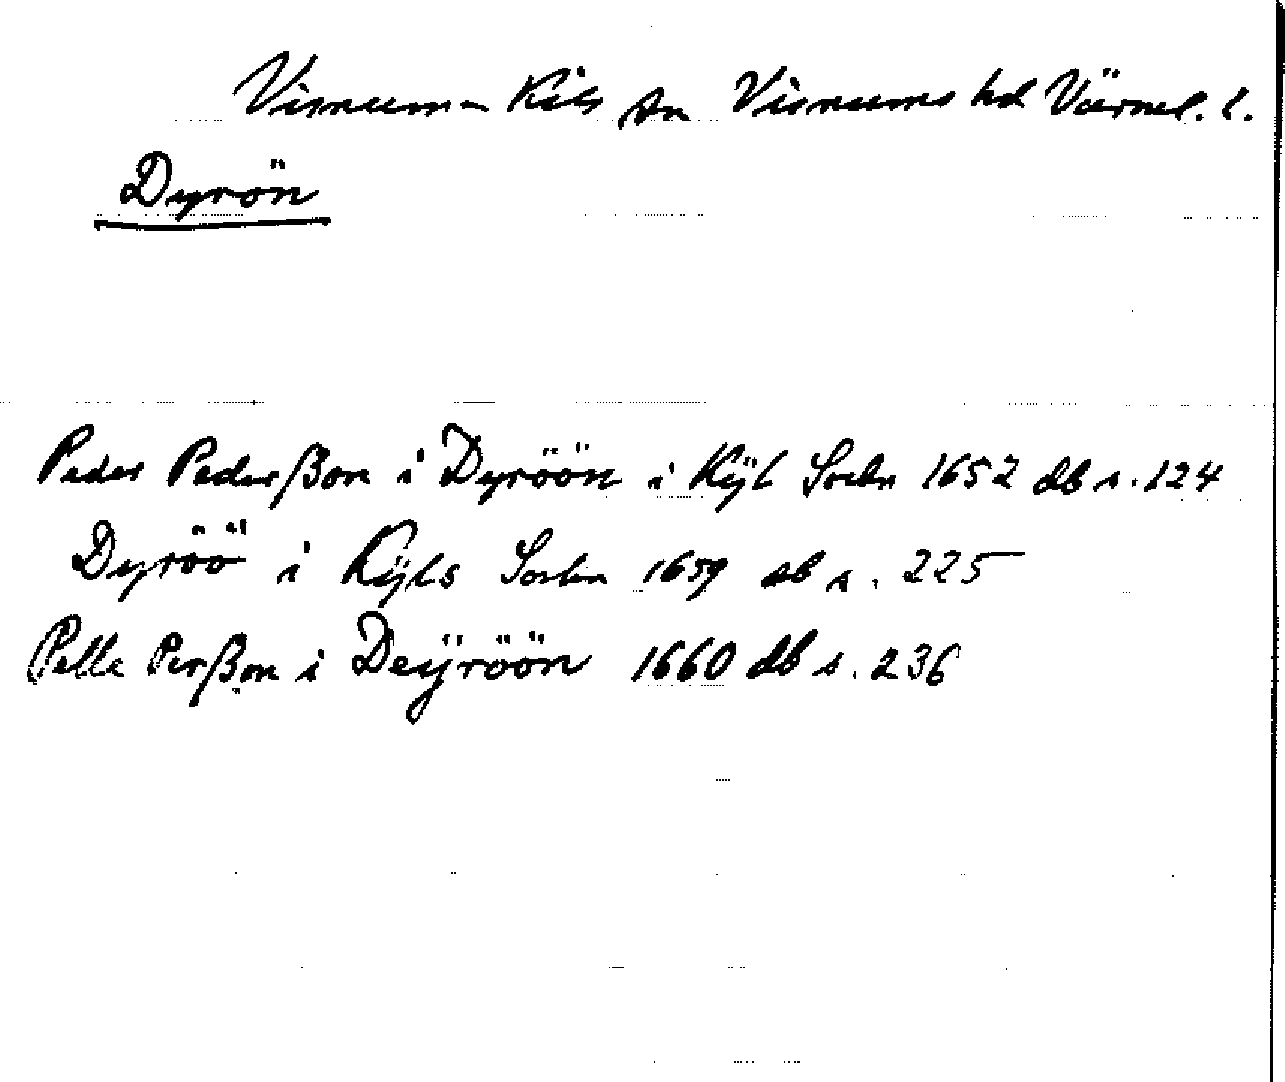 Visnum-Kils sn Visnums hd Värml. l.
Dyrön
Peder Pederßon i Dyröön i Kÿl Sochn 1652 db s. 124
Dyröö i Kÿls Sochn 1659 db s. 225
Pelle Perßon i Deÿröön 1660 db s. 236